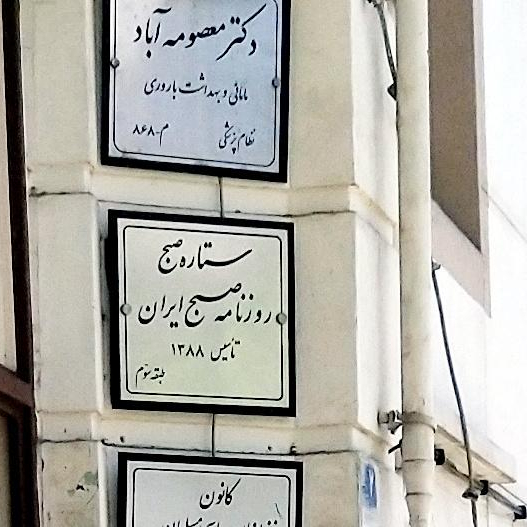 دکتر معصومه آباد
مامائی و بهداشت باروری
نظام پزشکی م-۸۶۸
ستاره صبح
روزنامه صبح ایران
تأسیس ۱۳۸۸
طبقه سوم
کانون